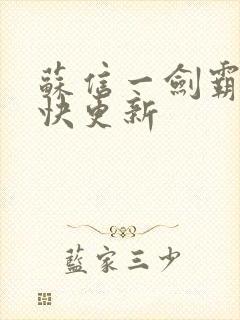 蘇信一劍霸
快更新
藍家三少